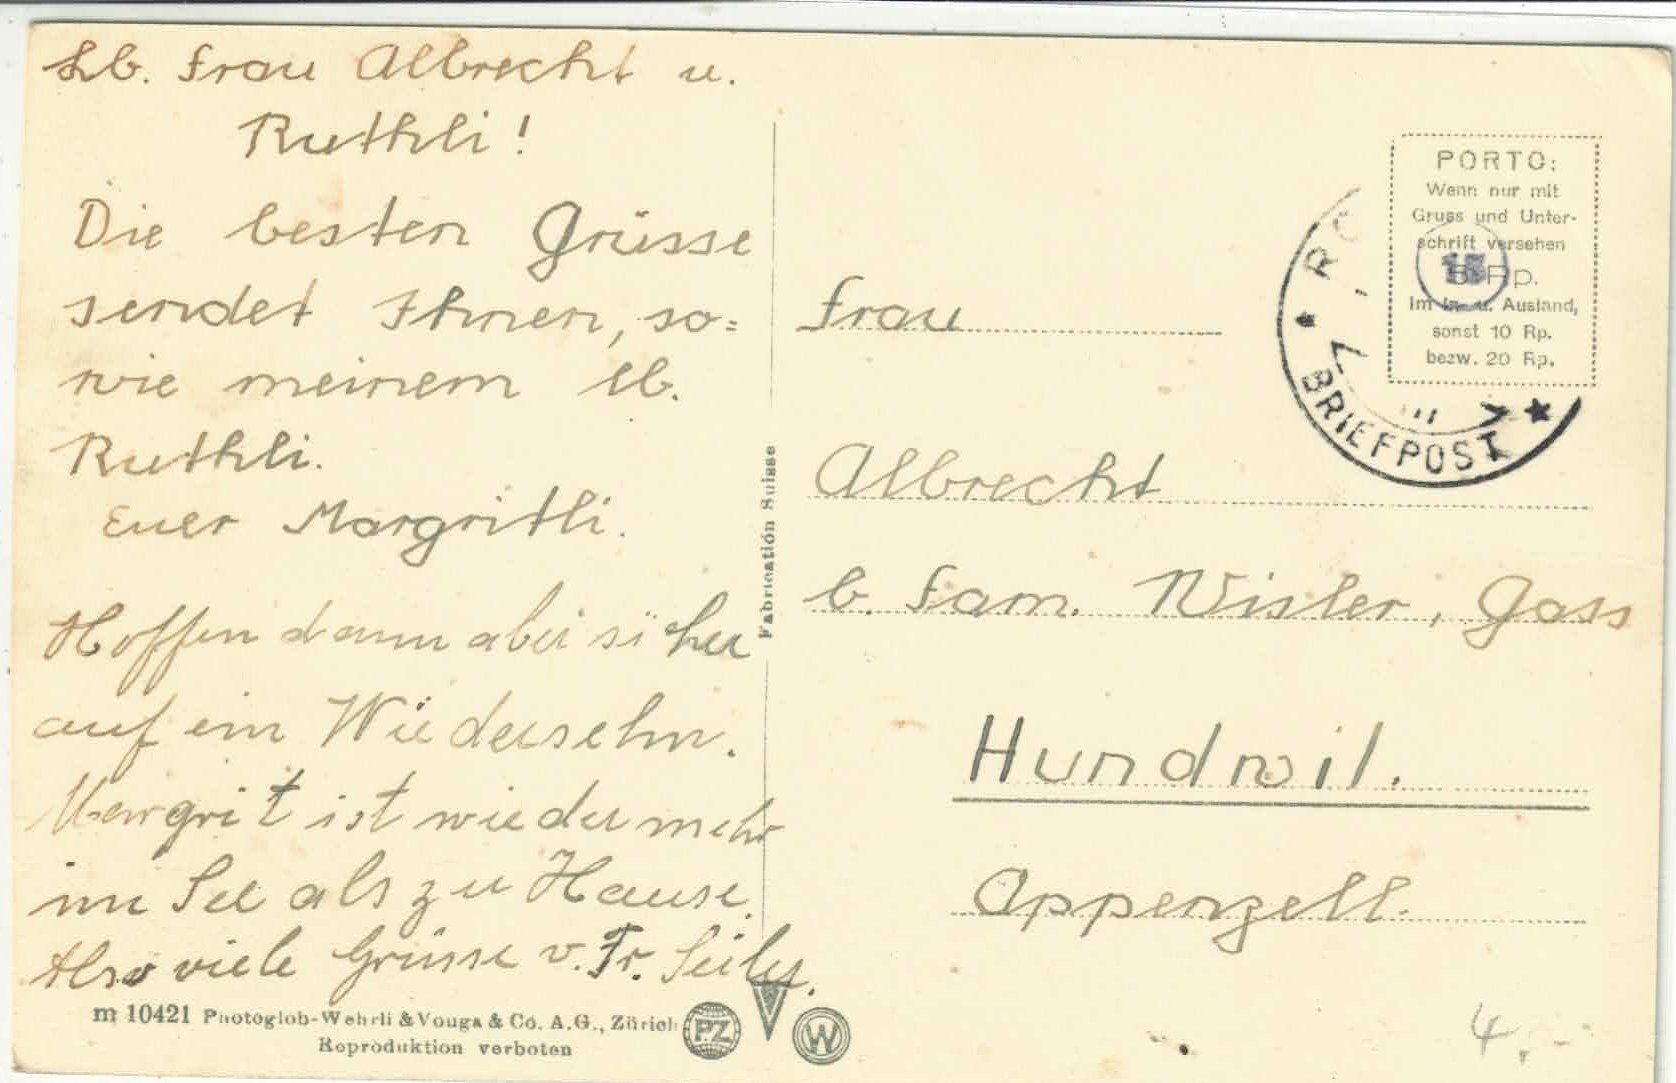 Lb. Frau Albrecht u.
Ruthli!
Die besten Grüsse
sendet Ihnen, so=
wie meinem lb.
Ruthli.
Euer Margritli.
Hoffen dann aber sicher
auf ein Wiedersehn.
Margrit ist wieder mehr
im See als zu Hause.
Also viele Grüsse v. Fr. Seiler.
m 10421 Photoglob-Wehrli & Vouga & Co. A.G., Zürich
Reproduktion verboten
PZ
W
Fabrication Suisse
PORTO:
Wenn nur mit
Gruss und Unter-
schrift versehen
Rp.
Im In- u. Ausland,
sonst 10 Rp.
bezw. 20 Rp.
BRIEFPOST
Frau
Albrecht
b. Fam. Nisler, Gass
Hundwil.
Appenzell.
4.-